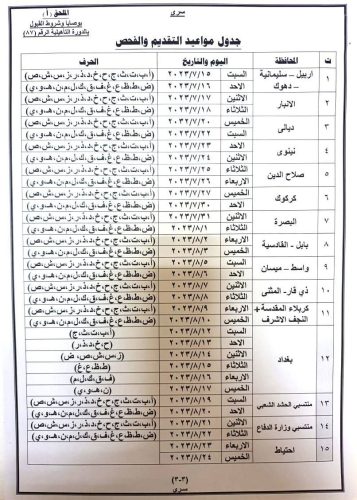 سري
الملحق (أ)
بوصايا وشروط القبول
بالدورة التأهيلية الرقم (٨٧)
جدول مواعيد التقديم والفحص
ت المحافظة اليوم والتاريخ الحرف
١ اربيل – سليمانية – دهوك السبت ٢٠٢٣/٧/١٥ (أ،ب،ت،ث،ج،ح،خ،د،ذ،ر،ز،س،ش،ص)
الاحد ٢٠٢٣/٧/١٦ (ض،ط،ظ،ع،غ،ف،ق،ك،ل،م،ن،هـ،و،ي)
٢ الانبار الاثنين ٢٠٢٣/٧/١٧ (أ،ب،ت،ث،ج،ح،خ،د،ذ،ر،ز،س،ش،ص)
الثلاثاء ٢٠٢٣/٧/١٨ (ض،ط،ظ،ع،غ،ف،ق،ك،ل،م،ن،هـ،و،ي)
٣ ديالى الخميس (أ،ب،ت،ث،ج،ح،خ،د،ذ،ر،ز،س،ش،ص)
السبت ٢٠٢٣/٧/٢٢ (ض،ط،ظ،ع،غ،ف،ق،ك،ل،م،ن،هـ،و،ي)
٤ نينوى الاحد ٢٠٢٣/٧/٢٣ (أ،ب،ت،ث،ج،ح،خ،د،ذ،ر،ز،س،ش،ص)
الاثنين ٢٠٢٣/٧/٢٤ (ض،ط،ظ،ع،غ،ف،ق،ك،ل،م،ن،هـ،و،ي)
٥ صلاح الدين الثلاثاء (أ،ب،ت،ث،ج،ح،خ،د،ذ،ر،ز،س،ش،ص)
الاربعاء (ض،ط،ظ،ع،غ،ف،ق،ك،ل،م،ن،هـ،و،ي)
٦ كركوك الخميس ٢٠٢٣/٧/٢٧ (أ،ب،ت،ث،ج،ح،خ،د،ذ،ر،ز،س،ش،ص)
الاحد ٢٠٢٣/٧/٣٠ (ض،ط،ظ،ع،غ،ف،ق،ك،ل،م،ن،هـ،و،ي)
٧ البصرة الاثنين ٢٠٢٣/٧/٣١ (أ،ب،ت،ث،ج،ح،خ،د،ذ،ر،ز،س،ش،ص)
الثلاثاء ٢٠٢٣/٨/١ (ض،ط،ظ،ع،غ،ف،ق،ك،ل،م،ن،هـ،و،ي)
٨ بابل - القادسية الاربعاء ٢٠٢٣/٨/٢ (أ،ب،ت،ث،ج،ح،خ،د،ذ،ر،ز،س،ش،ص)
الخميس ٢٠٢٣/٨/٣ (ض،ط،ظ،ع،غ،ف،ق،ك،ل،م،ن،هـ،و،ي)
٩ واسط – ميسان السبت (أ،ب،ت،ث،ج،ح،خ،د،ذ،ر،ز،س،ش،ص)
الاحد (ض،ط،ظ،ع،غ،ف،ق،ك،ل،م،ن،هـ،و،ي)
١٠ ذي قار- المثنى الاثنين (أ،ب،ت،ث،ج،ح،خ،د،ذ،ر،ز،س،ش،ص)
الثلاثاء ٢٠٢٣/٨/٨ (ض،ط،ظ،ع،غ،ف،ق،ك،ل،م،ن،هـ،و،ي)
١١ كربلاء المقدسة+ النجف الاشرف الاربعاء ٢٠٢٣/٨/٩ (أ،ب،ت،ث،ج،ح،خ،د،ذ،ر،ز،س،ش،ص)
الخميس ٢٠٢٣/٨/١٠ (ض،ط،ظ،ع،غ،ف،ق،ك،ل،م،ن،هـ،و،ي)
١٢ بغداد السبت ٢٠٢٣/٨/١٢ (أ،ب،ت،ث،ج)
الاحد ٢٠٢٣/٨/١٣ (ح،خ،د،ذ،ر)
الاثنين ٢٠٢٣/٨/١٤ (ز،س،ش،ص،ض)
الثلاثاء ٢٠٢٣/٨/١٥ (ط،ظ،ع،غ)
الاربعاء (ف،ق،ك،ل،م)
الخميس ٢٠٢٣/٨/١٧ (ن،هـ،و،ي)
١٣ منتسبي الحشد الشعبي السبت ٢٠٢٣/٨/١٩ (أ،ب،ت،ث،ج،ح،خ،د،ذ،ر،ز،س،ش،ص)
الاحد ٢٠٢٣/٨/٢٠ (ض،ط،ظ،ع،غ،ف،ق،ك،ل،م،ن،هـ،و،ي)
١٤ منتسبي وزارة الدفاع الاثنين ٢٠٢٣/٨/٢١ (أ،ب،ت،ث،ج،ح،خ،د،ذ،ر،ز،س،ش،ص)
الثلاثاء ٢٠٢٣/٨/٢٢ (ض،ط،ظ،ع،غ،ف،ق،ك،ل،م،ن،هـ،و،ي)
١٥ احتياط الاربعاء ٢٠٢٣/٨/٢٣
الخميس ٢٠٢٣/٨/٢٤
(٣-٣)
سري